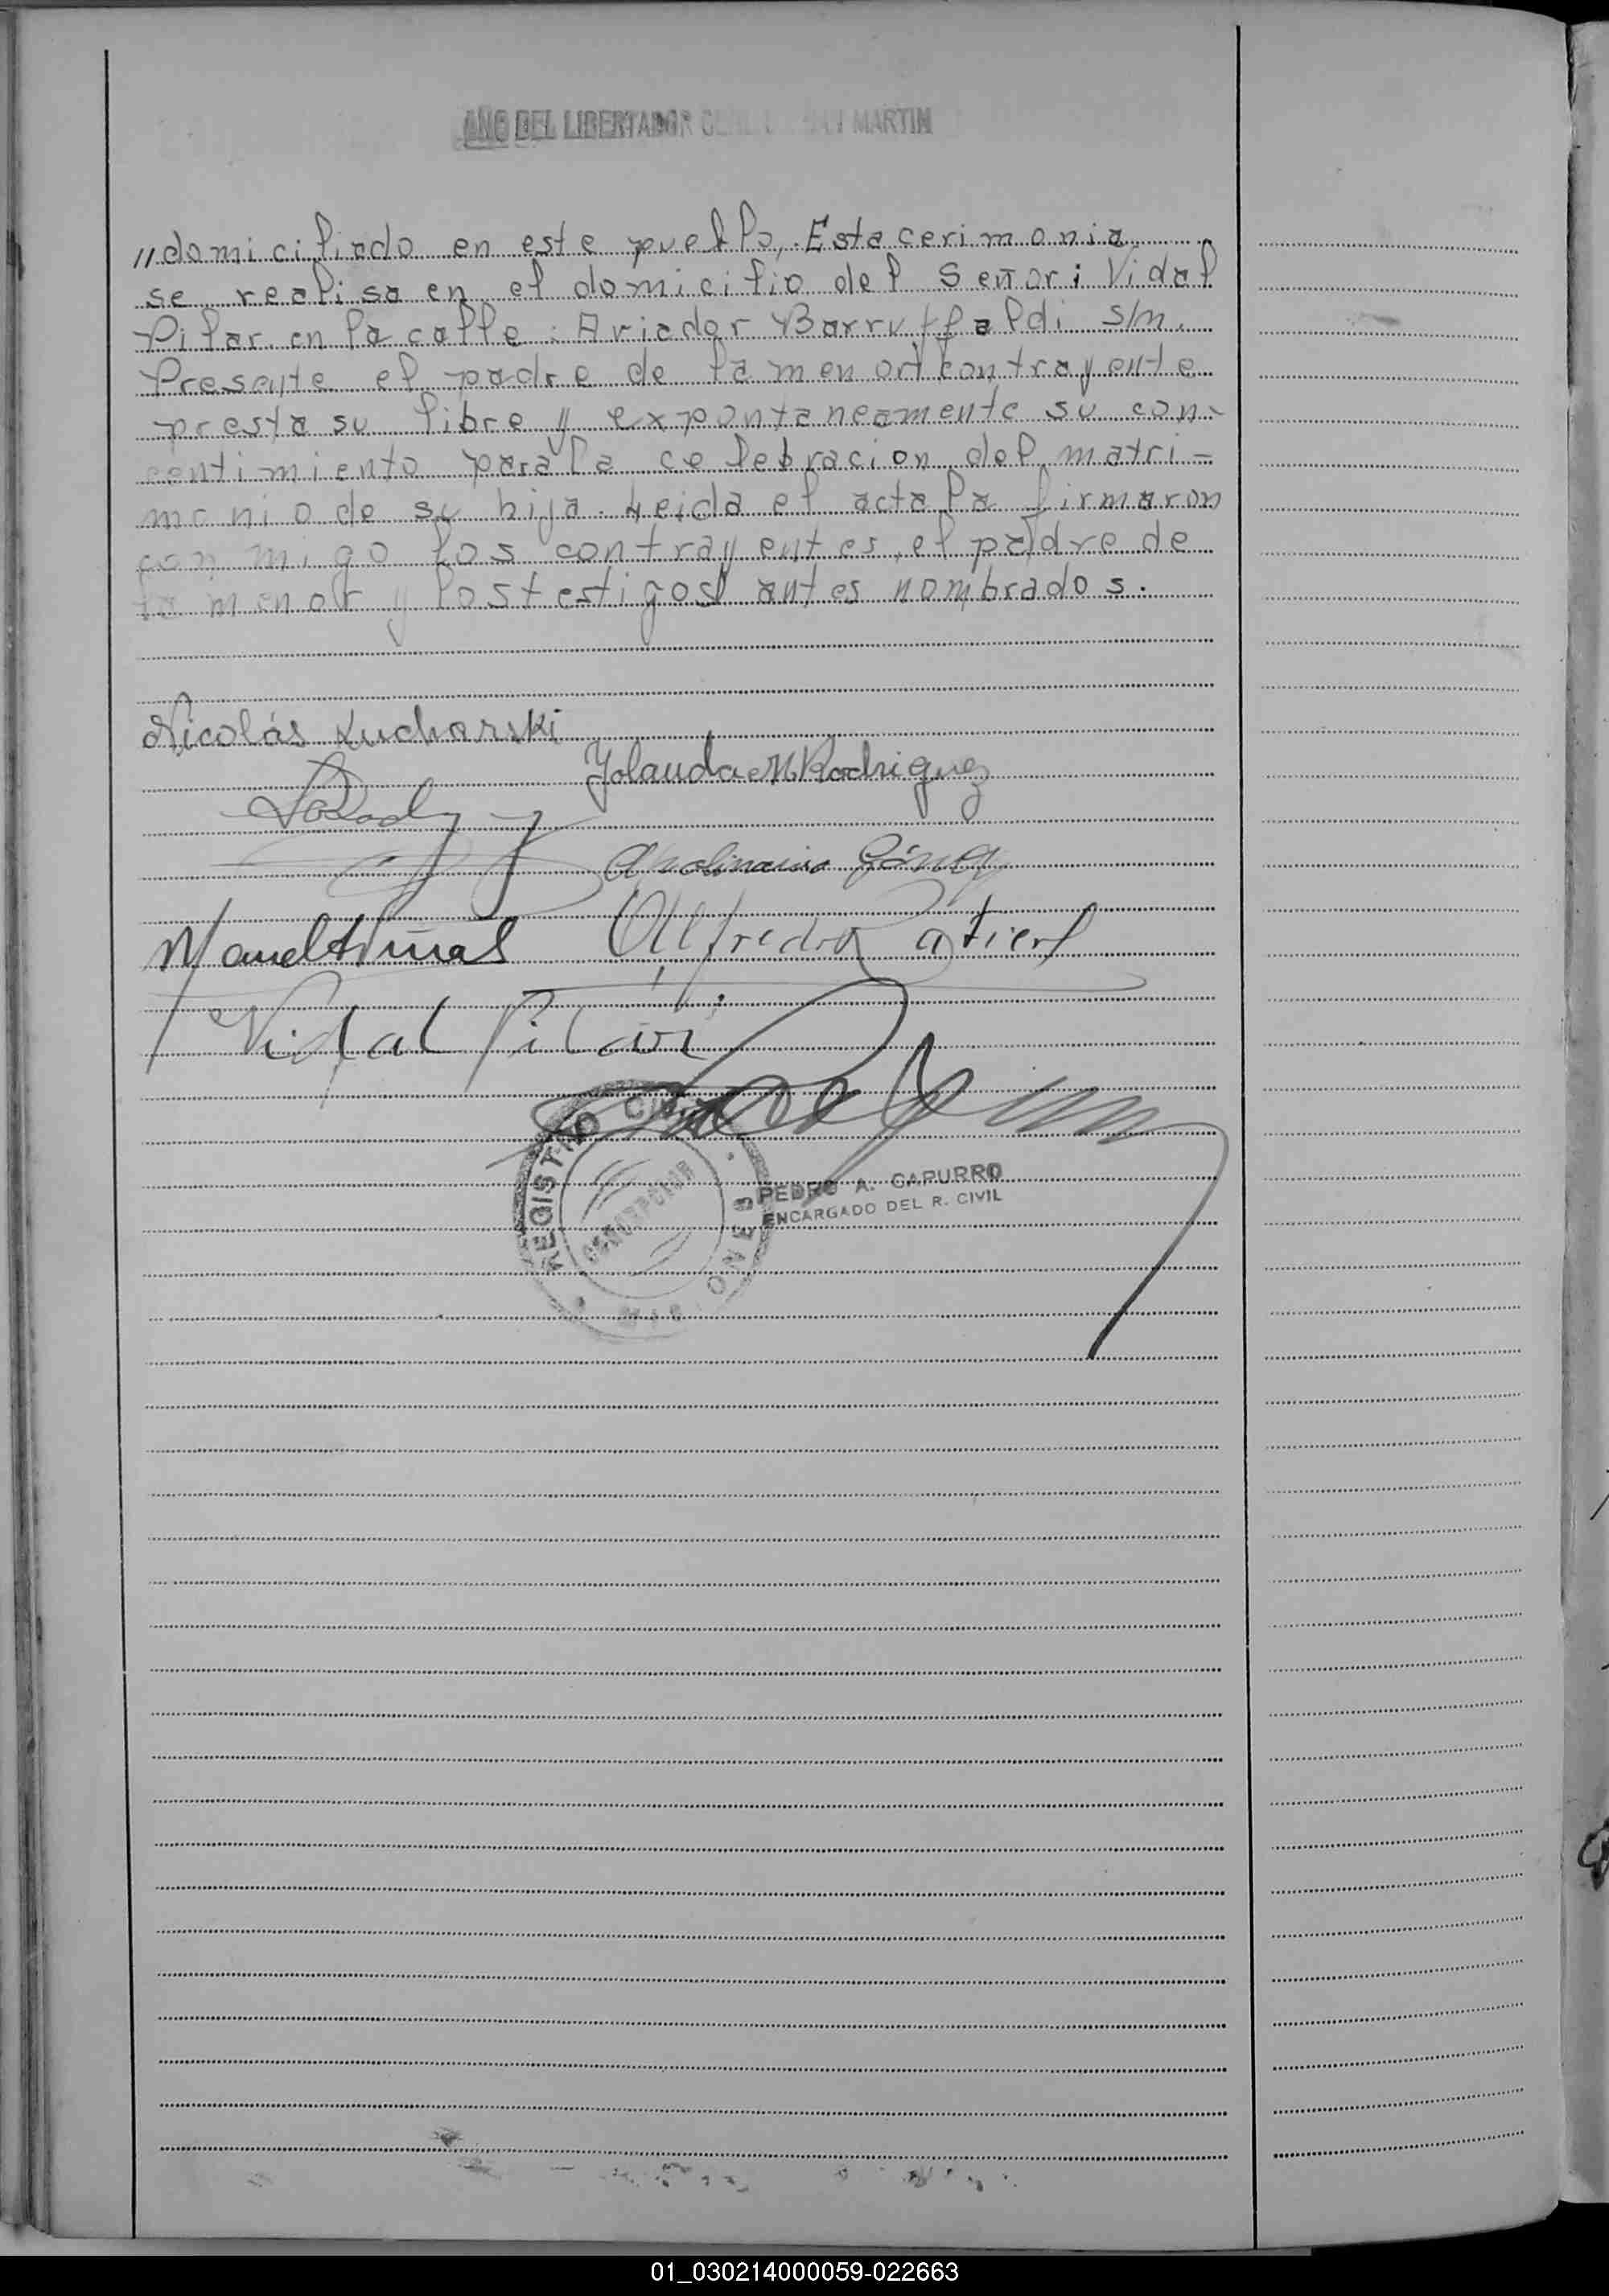 AÑO DEL LIBERTADOR GENERAL SAN MARTIN
"domiciliado en este pueblo, Esta cerimonia
se realisa en el domicilio del Señor: Vidal
Pilar en la calle: Aviador Barruffaldi s/n.
Presente el padre de la menor contrayente
presta su libre y expontaneamente su con-
centimiento para la celebracion del matri-
monio de su hija. Leida el acta la firmaron
con migo los contrayentes, el padre de
la menor y los testigos antes nombrados.
Nicolás Kucharski
Yolanda M Rodriguez
Apolinario Gómez
Manuel
Alfredo
Vidal Pilar
REGISTRO CIVIL
MISIONES
PEDRO A. CAPURRO
ENCARGADO DEL R. CIVIL
01_030214000059-022663